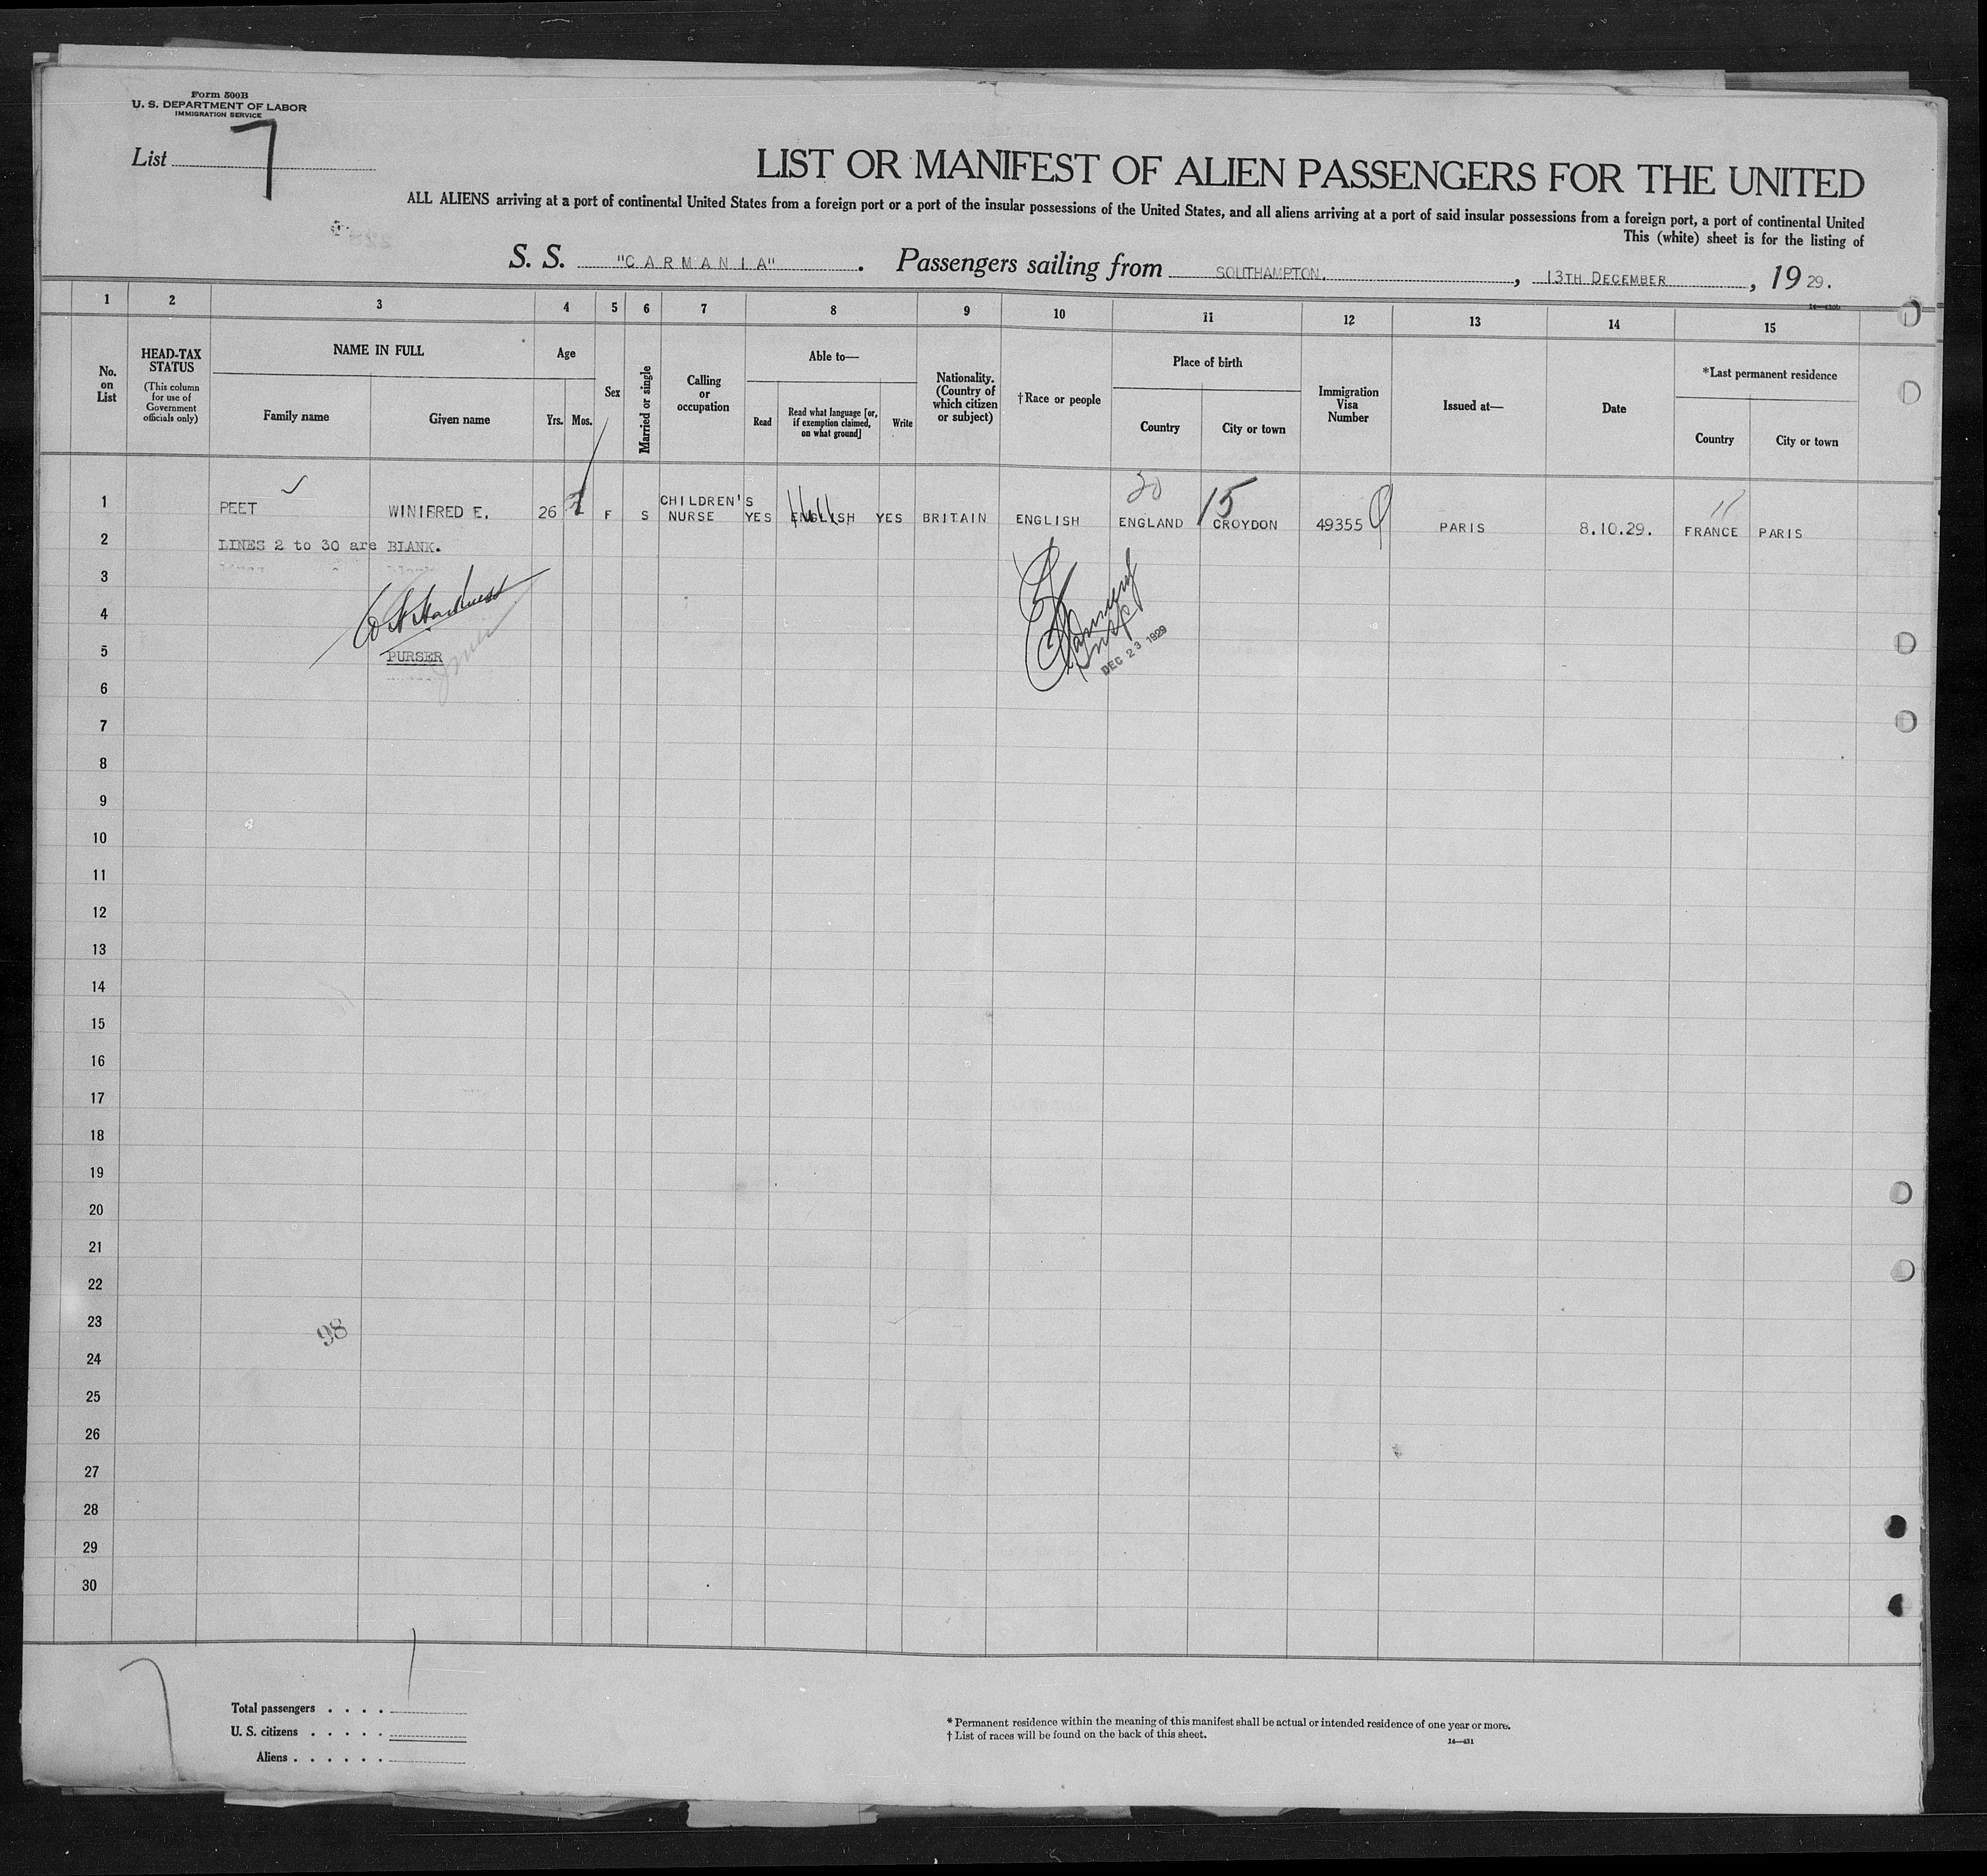 Form 500B
U. S. DEPARTMENT OF LABOR
IMMIGRATION SERVICE
List 7
LIST OR MANIFEST OF ALIEN PASSENGERS FOR THE UNITED
ALL ALIENS arriving at a port of continental United States from a foreign port or a port of the insular possessions of the United States, and all aliens arriving at a port of said insular possessions from a foreign port, a port of continental United
This (white) sheet is for the listing of
S. S. "CARMANIA". Passengers sailing from SOUTHAMPTON, 13TH DECEMBER, 1929.
1 2 3 4 5 6 7 8 9 10 11 12 13 14 15
No. on List
HEAD-TAX STATUS
(This column for use of Government officials only)
NAME IN FULL
Family name
Given name
Age
Yrs. Mos.
Sex
Married or single
Calling or occupation
Able to—
Read
Read what language [or, if exemption claimed, on what ground]
Write
Nationality. (Country of which citizen or subject)
†Race or people
Place of birth
Country
City or town
Immigration Visa Number
Issued at—
Date
*Last permanent residence
Country
City or town
20 15 11
1 PEET WINIFRED E. 26 F S CHILDREN'S NURSE YES ENGLISH YES BRITAIN ENGLISH ENGLAND CROYDON 49355 PARIS 8.10.29. FRANCE PARIS
2 LINES 2 to 30 are BLANK.
3
4
5 PURSER
DEC 23 1929
6
7
8
9
10
11
12
13
14
15
16
17
18
19
20
21
22
23
98
24
25
26
27
28
29
30
7
Total passengers . . . . 1
U. S. citizens . . . . .
Aliens . . . . . .
* Permanent residence within the meaning of this manifest shall be actual or intended residence of one year or more.
† List of races will be found on the back of this sheet.
14—431